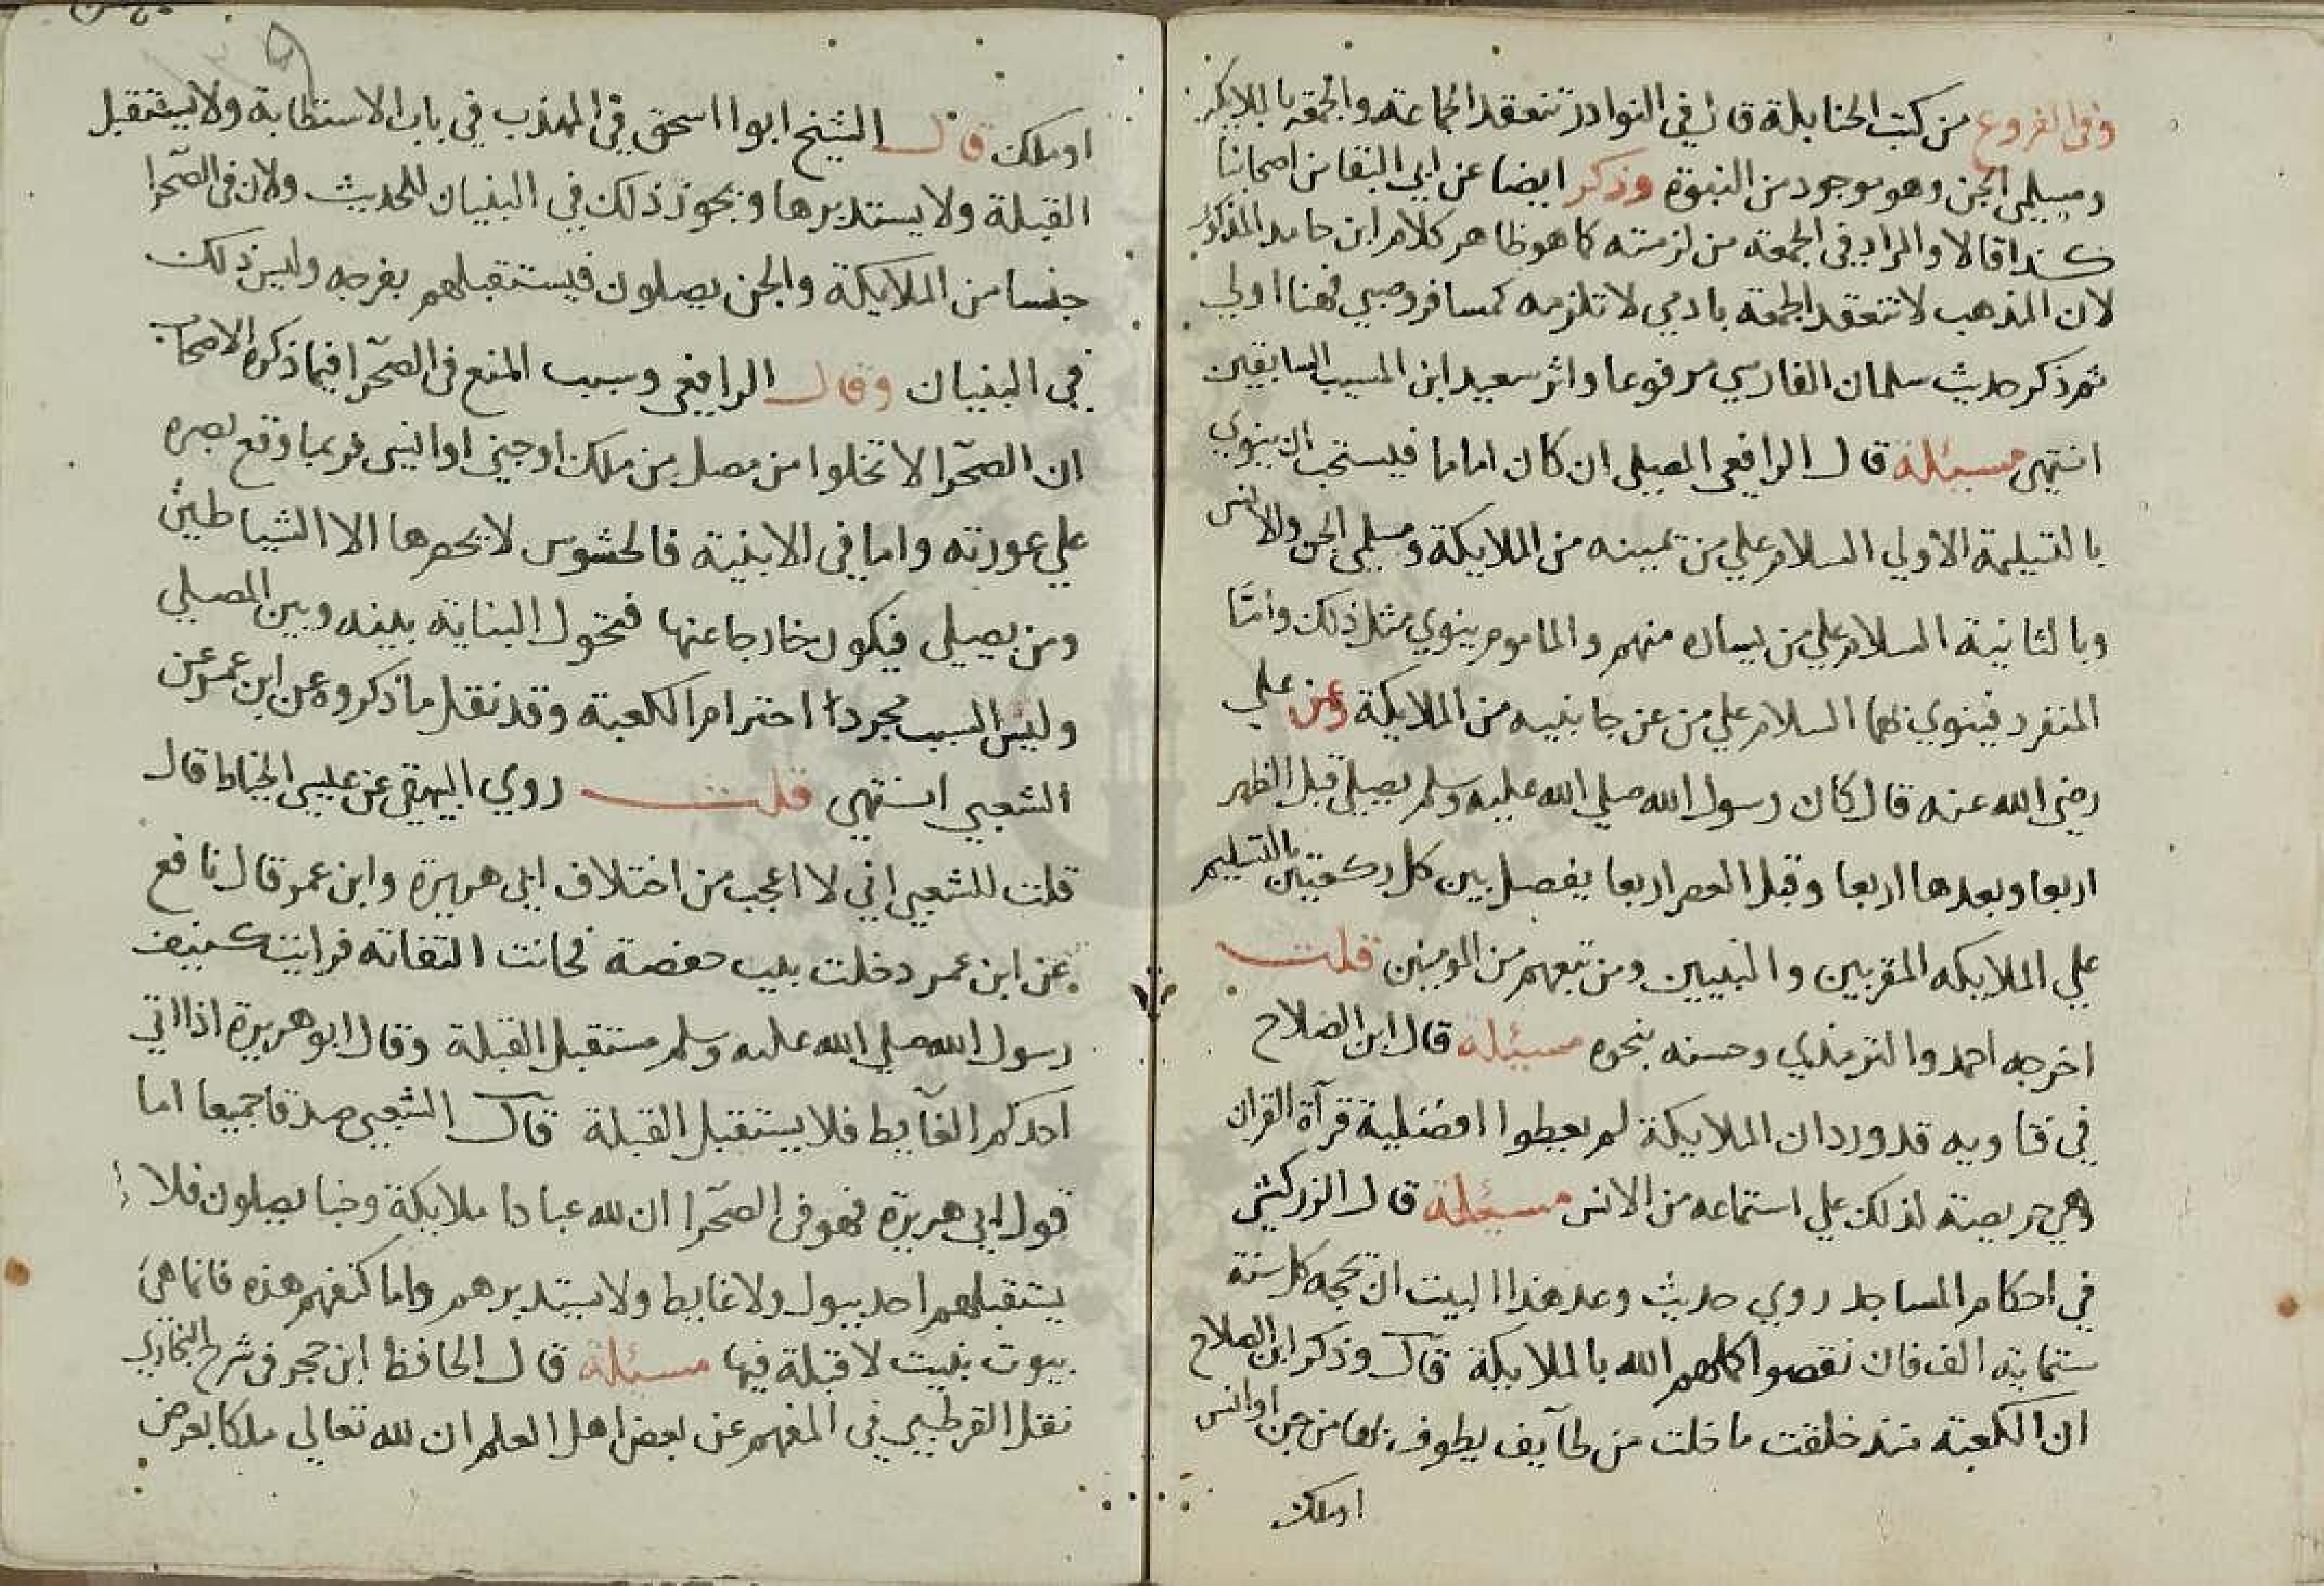 وفي الفروع من كتب الحنابلة قال في النوادر تنعقد الجماعة والجمعة بالملايكة
ومسلمي الجن وهو موجود من النبوة وذكر ايضا عن ابي البقا من اصحابنا
كذا قالا والمراد في الجمعة من لزمته كما هو ظاهر كلام ابن حامد المذكور
لان المذهب لا تنعقد الجمعة بادمي لا تلزمه كمسافر وصبي فهنا اولي
ثم ذكر حديث سلمان الفارسي مرفوعا واثر سعيد ابن المسيب السابقين
انتهي مسئلة قال الرافعي المصلي ان كان اماما فيستحب ان ينوي
بالتسليمة الاولي السلام علي من يمينه من الملايكة ومسلمي الجن والانس
وبالثانية السلام علي من يساره منهم والماموم ينوي مثل ذلك وامّا
المنفرد فينوي بهما السلام علي من عن جانبيه من الملايكة وعن علي
رضي الله عنه قال كان رسول الله صلي الله عليه وسلم يصلي قبل الظهر
اربعا وبعدها اربعا وقبل العصر اربعا يفصل بين كل ركعتين بالتسليم
علي الملايكه المقربين والنبيين ومن تبعهم من المومنين قلت
اخرجه احمد والترمذي وحسنه بنحوه مسئلة قال ابن الصلاح
في فتاويه قد ورد ان الملايكة لم يعطوا افضلية قرآة القران
وهي حريصة لذلك علي استماعه من الانس مسئلة قال الزركشي
في احكام المساجد روي حديث وعد هذا البيت ان يحجه كل سنة
ستماية الف فان نقصوا اكملهم الله بالملايكة قال وذكر ابن الصلاح
ان الكعبة منذ خلقت ما خلت من طآيف يطوف بها من جن او انس
او ملك
او ملك قال الشيخ ابوا اسحق في المهذب في باب الاستطابة ولا يستقبل
القبلة ولا يستدبرها ويجوز ذلك في البنيان للحديث ولان في الصحرا
جنسا من الملايكة والجن يصلون فيستقبلهم بفرجه وليس ذلك
في البنيان وقال الرافعي وسبب المنع في الصحرا فيما ذكره الاصحاب
ان الصحرا لا تخلوا من مصل من ملك او جني او انسي فربما وقع بصره
علي عورته واما في الابنية فالحشوس لا يحضرها الا الشياطين
ومن يصلي فيكون خارجا عنها فتحول البناية بينه وبين المصلي
وليس السبب مجردا احترام الكعبة وقد نقل ما ذكروه عن ابن عمر عن
الشعبي انتهي قلت روي البيهقي عن عيسي الخياط قال
قلت للشعبي اني لا اعجب من اختلاف ابي هريرة وابن عمر قال نافع
عن ابن عمر دخلت بيت حفصة فحانت التفاتة فرايت كنيف
رسول الله صلي الله عليه وسلم مستقبل القبلة وقال ابو هريرة اذا اتي
احدكم الغآيط فلا يستقبل القبلة قال الشعبي صدقا جميعا اما
قول ابي هريرة فهو في الصحرا ان لله عبادا ملايكة وجنا يصلون فلا
يستقبلهم احد ببول ولا غايط ولا يستدبرهم واما كنفهم هذه فانما هي
بيوت بنيت لا قبلة فيها مسئلة قال الحافظ ابن حجر في شرح البخاري
نقل القرطبي في المفهم عن بعض اهل العلم ان لله تعالي ملكا يعرض